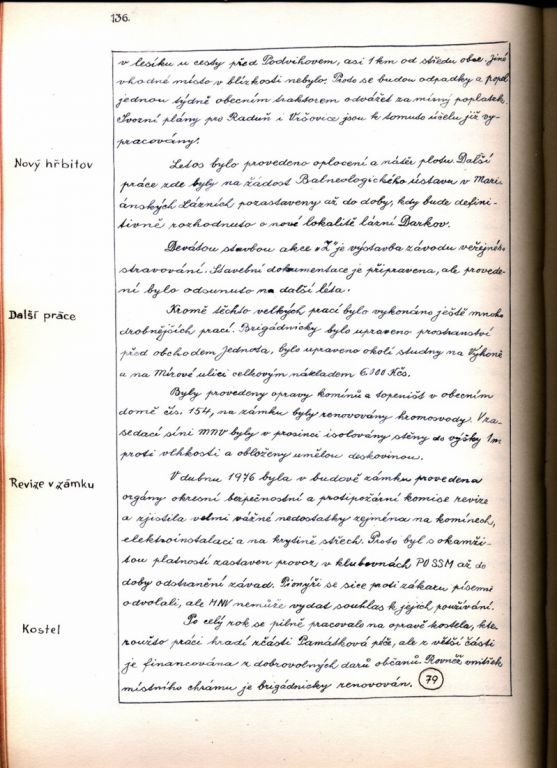 136.
v lesíku u cesty před Podvihovem, asi 1 km od středu obce. Jiné
vhodné místo v blízkosti nebylo. Proto se budou odpadky a popel
jednou týdně obecním traktorem odvážet za mírný poplatek.
Svozní plány pro Raduň i Vršovice jsou k tomuto účelu již vy-
pracovány.
Nový hřbitov
Letos bylo provedeno oplocení a nátěr plotu. Další
práce zde byly na žádost Balneologického ústavu v Mari-
ánských Lázních pozastaveny až do doby, kdy bude defini-
tivně rozhodnuto o nové lokalitě lázní Darkov.
Devátou stavbou akce "Z" je výstavba závodu veřejného
stravování. Stavební dokumentace je připravena, ale provede-
ní bylo odsunuto na další léta.
Další práce
Kromě těchto velkých prací bylo vykonáno ještě mnoho
drobnějších prací. Brigádnicky bylo upraveno prostranství
před obchodem Jednota, bylo upraveno okolí studny na Výhoně
u na Mírové ulici celkovým nákladem 6.000 Kčs.
Byly provedeny opravy komínů a topenišť v obecním
domě čís. 154, na zámku byly renovovány hromosvody. V za-
sedací síni MNV byly v prosinci isolovány stěny do výšky 1m
proti vlhkosti a obloženy umělou deskovinou.
Revize v zámku
V dubnu 1976 byla v budově zámku provedena
orgány okresní bezpečnostní a protipožární komise revize
a zjistila velmi vážné nedostatky zejména na komínech,
elektroinstalaci a na krytině střech. Proto byl s okamži-
tou platností zastaven provoz v klubovnách PO SSM až do
doby odstranění závad. Pionýři se sice proti zákazu písemně
odvolali, ale MNV nemůže vydat souhlas k jejich používání.
Kostel
Po celý rok se pilně pracovalo na opravě kostela, kte-
roužto práci hradí zčásti Památková péče, ale z větší části
je financována z dobrovolných darů občanů. Rovněž vnitřek
místního chrámu je brigádnicky renovován. 79